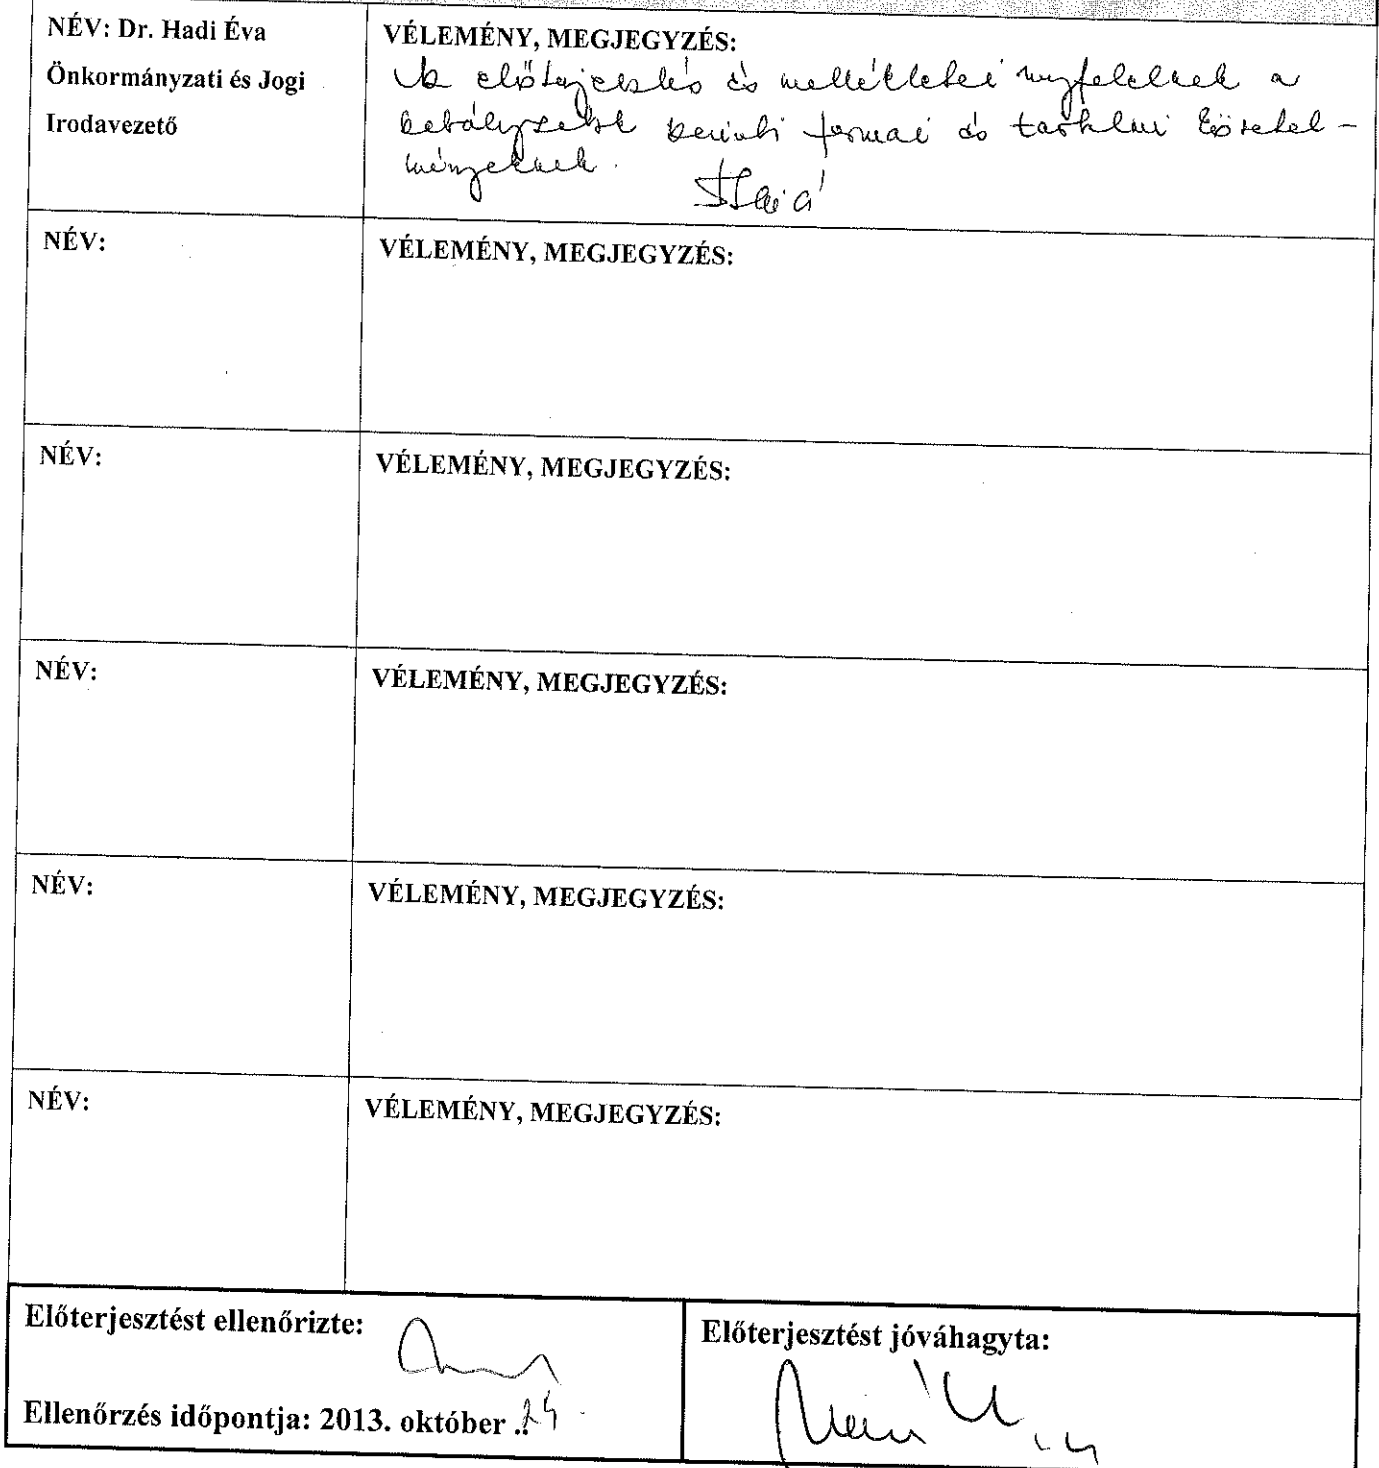 NÉV: Dr. Hadi Éva
Önkormányzati és Jogi
Irodavezető
VÉLEMÉNY, MEGJEGYZÉS:
Az előterjesztés és mellékletei megfelelnek a
szabályzatok szerinti formai és tartalmi követel-
ményeknek.
NÉV:
VÉLEMÉNY, MEGJEGYZÉS:
NÉV:
VÉLEMÉNY, MEGJEGYZÉS:
NÉV:
VÉLEMÉNY, MEGJEGYZÉS:
NÉV:
VÉLEMÉNY, MEGJEGYZÉS:
NÉV:
VÉLEMÉNY, MEGJEGYZÉS:
Előterjesztést ellenőrizte:
Ellenőrzés időpontja: 2013. október .24
Előterjesztést jóváhagyta: